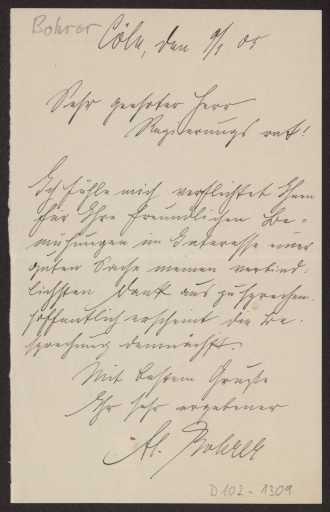 Bohrer
Cöln, den 9/1 05
Sehr geehrter Herr
Regierungsrat!
Ich fühle mich verpflichtet Ihnen
für Ihre freundlichen Be-
mühungen im Interesse einer
guten Sache meinen verbind-
lichsten Dank auszusprechen.
Hoffentlich erscheint die Be-
sprechung demnächst.
Mit bestem Gruße
Ihr sehr ergebener
Al. Bohrer
D102-1309